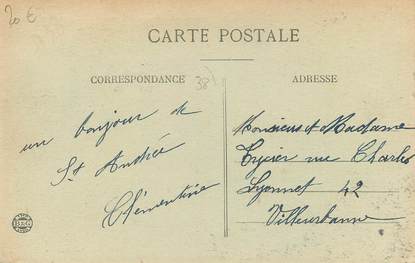 20 €
CARTE POSTALE
CORRESPONDANCE
38
ADRESSE
un bonjour de
St Andrée
Clémentine
Monsieur et Madame
rue Charles
Lyonnet 42
Villeurbanne